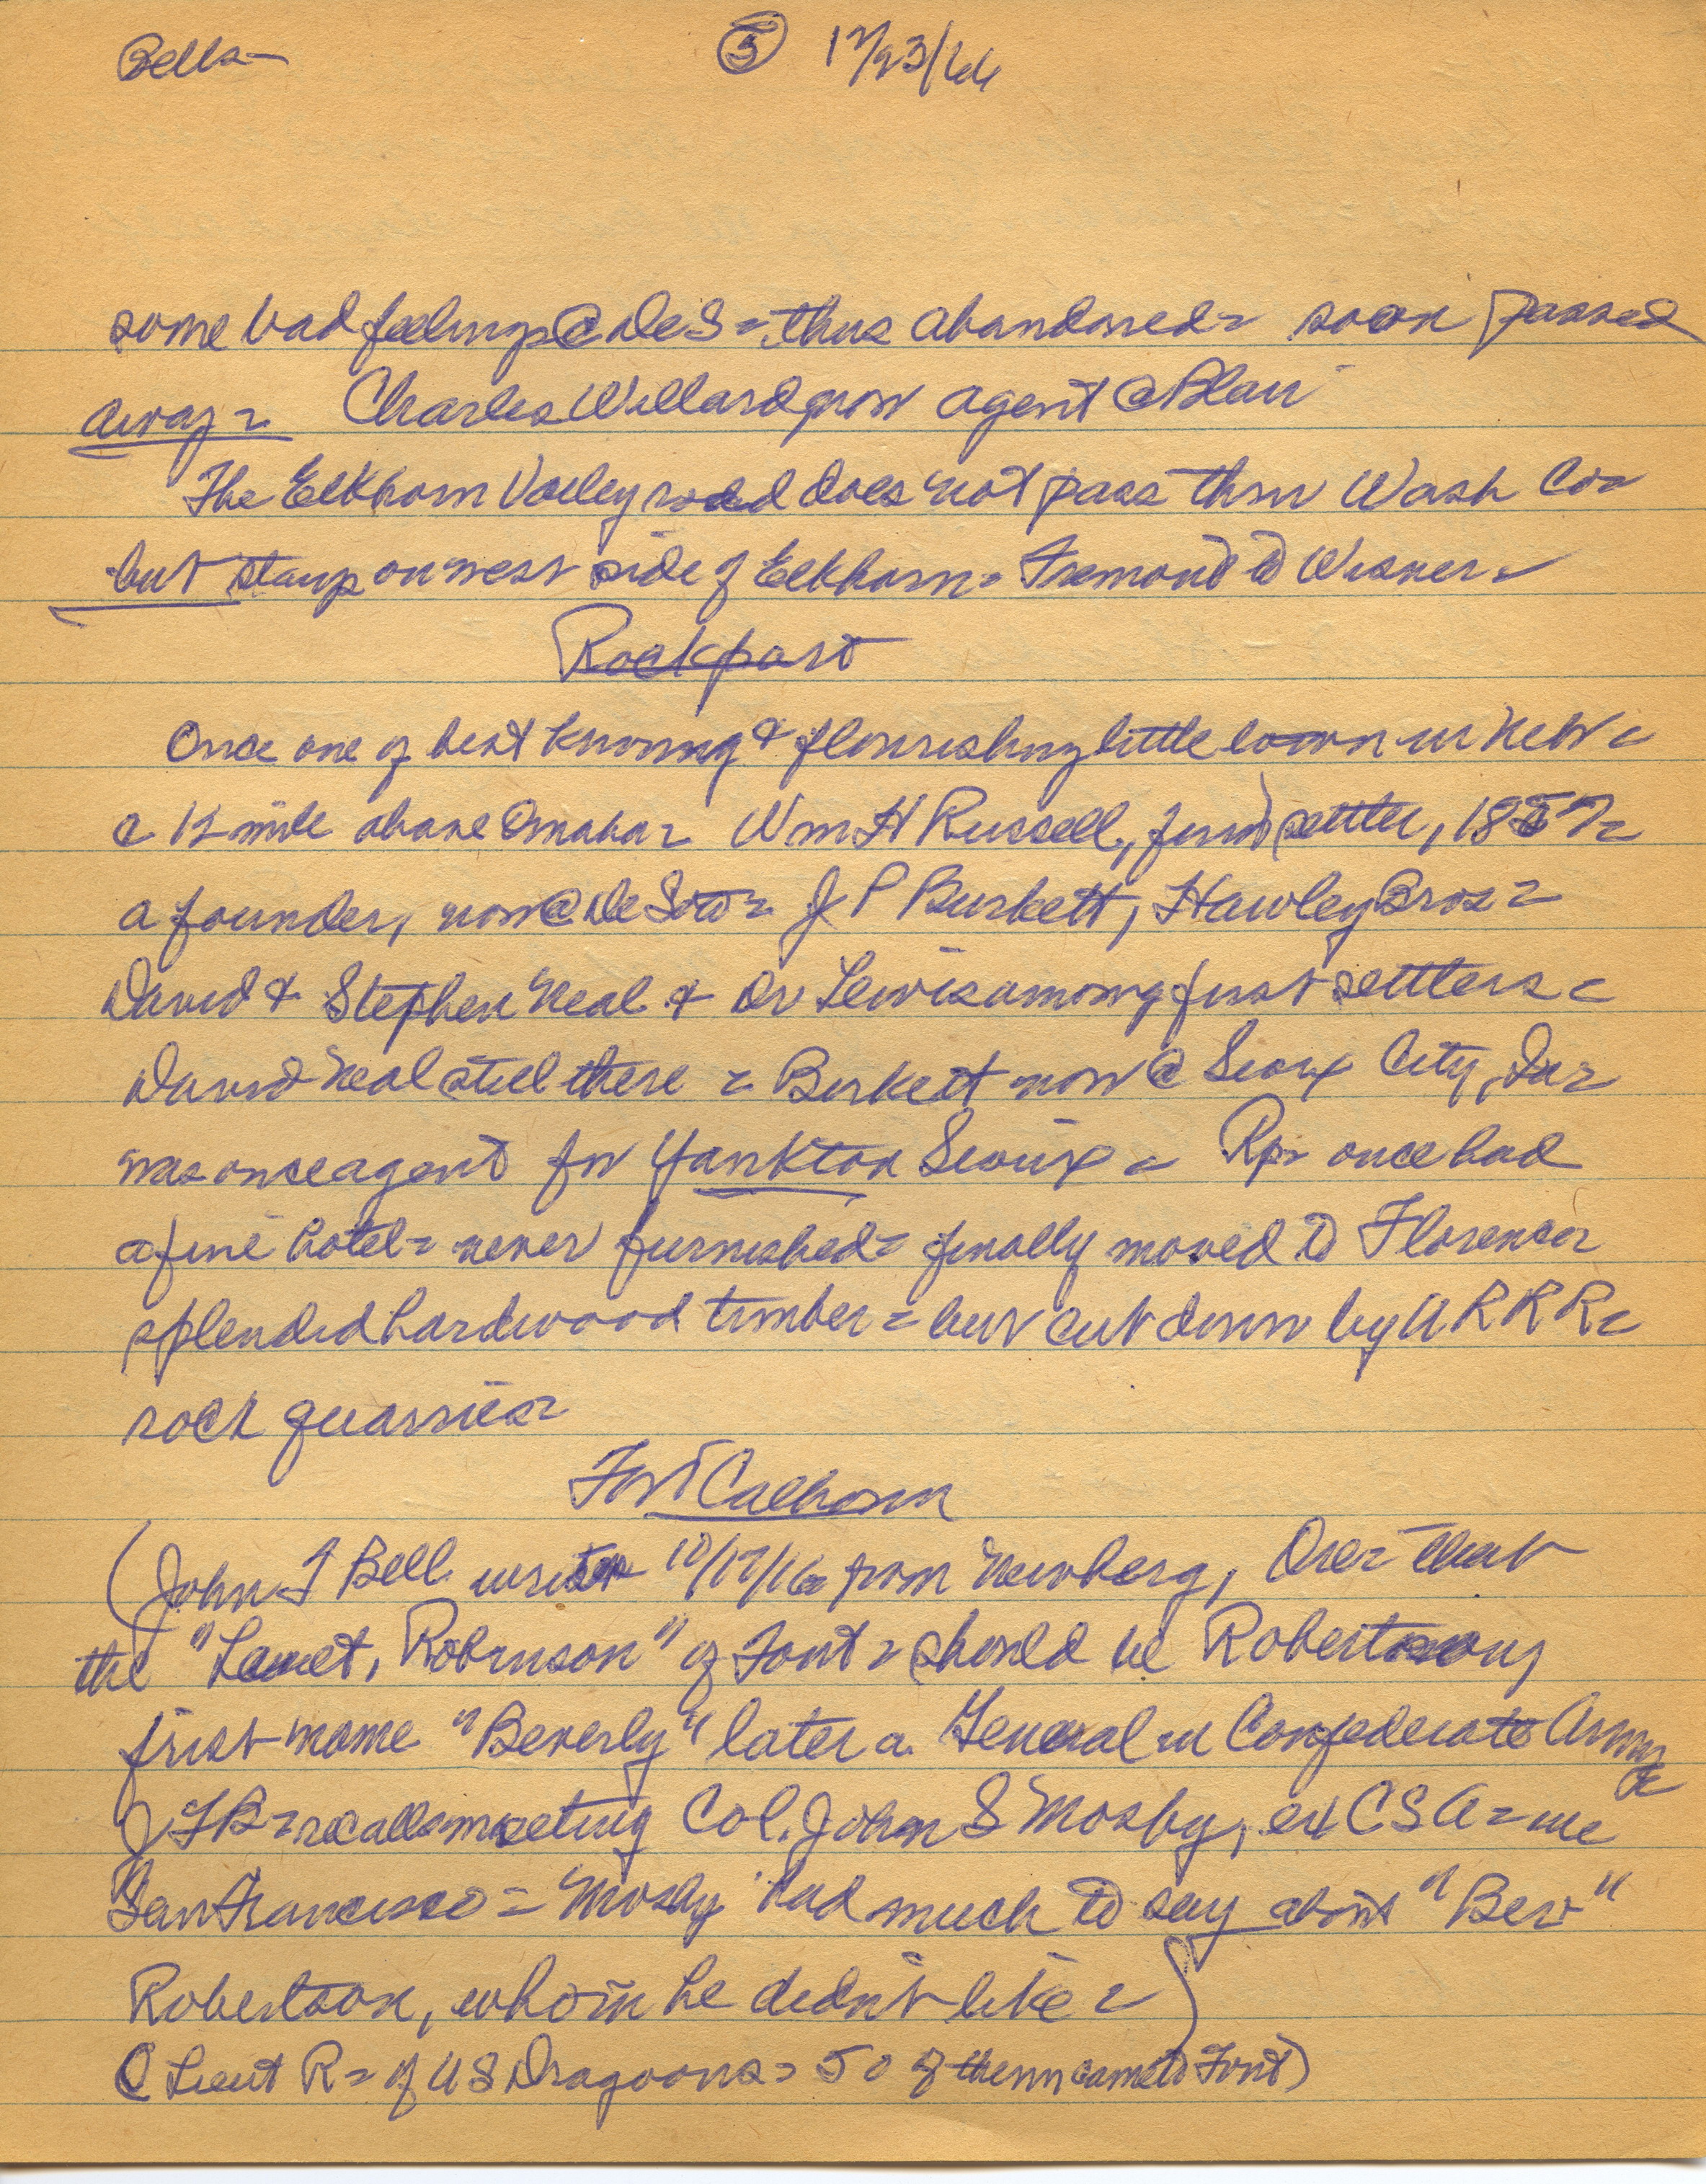 Bell= ⑤ 12/23/66
some bad feelings @ DeS = thus abandoned = soon passed
away = Charles Willard now agent @ Blair
The Elkhorn Valley road does not pass thru Wash Co =
but stays on west side of Elkhorn = Fremont to Wisner =
Rockport
Once one of best known & flourishing little town in Neb =
@ 12 mile above Omaha = Wm H Russell, first settler, 1857 =
a founder, now @ De Soto = J P Burkett, Hawley Bros =
David & Stephen Neal & Dr Lewis among first settlers =
David Neal still there = Burkett now @ Sioux City, Ia =
was once agent for Yankton Sioux = Rp = once had
a fine hotel = never furnished = finally moved to Florence =
splendid hardwood timber = but cut down by U R R R =
rock quarries =
Fort Calhoun
(John T Bell writes 10/17/16 from Newberg, Ore = that
the "Lieut, Robinson" of Font = should be Robertson,
first name "Beverly" later a General in Confederate Army =
JTB = recalls meeting Col. John S Mosby, ex CSA = in
San Francisco = Mosby had much to say about "Bev"
Robertson, whom he didn't like = )
(Lieut R = of US Dragoons = 50 of them came to Font)